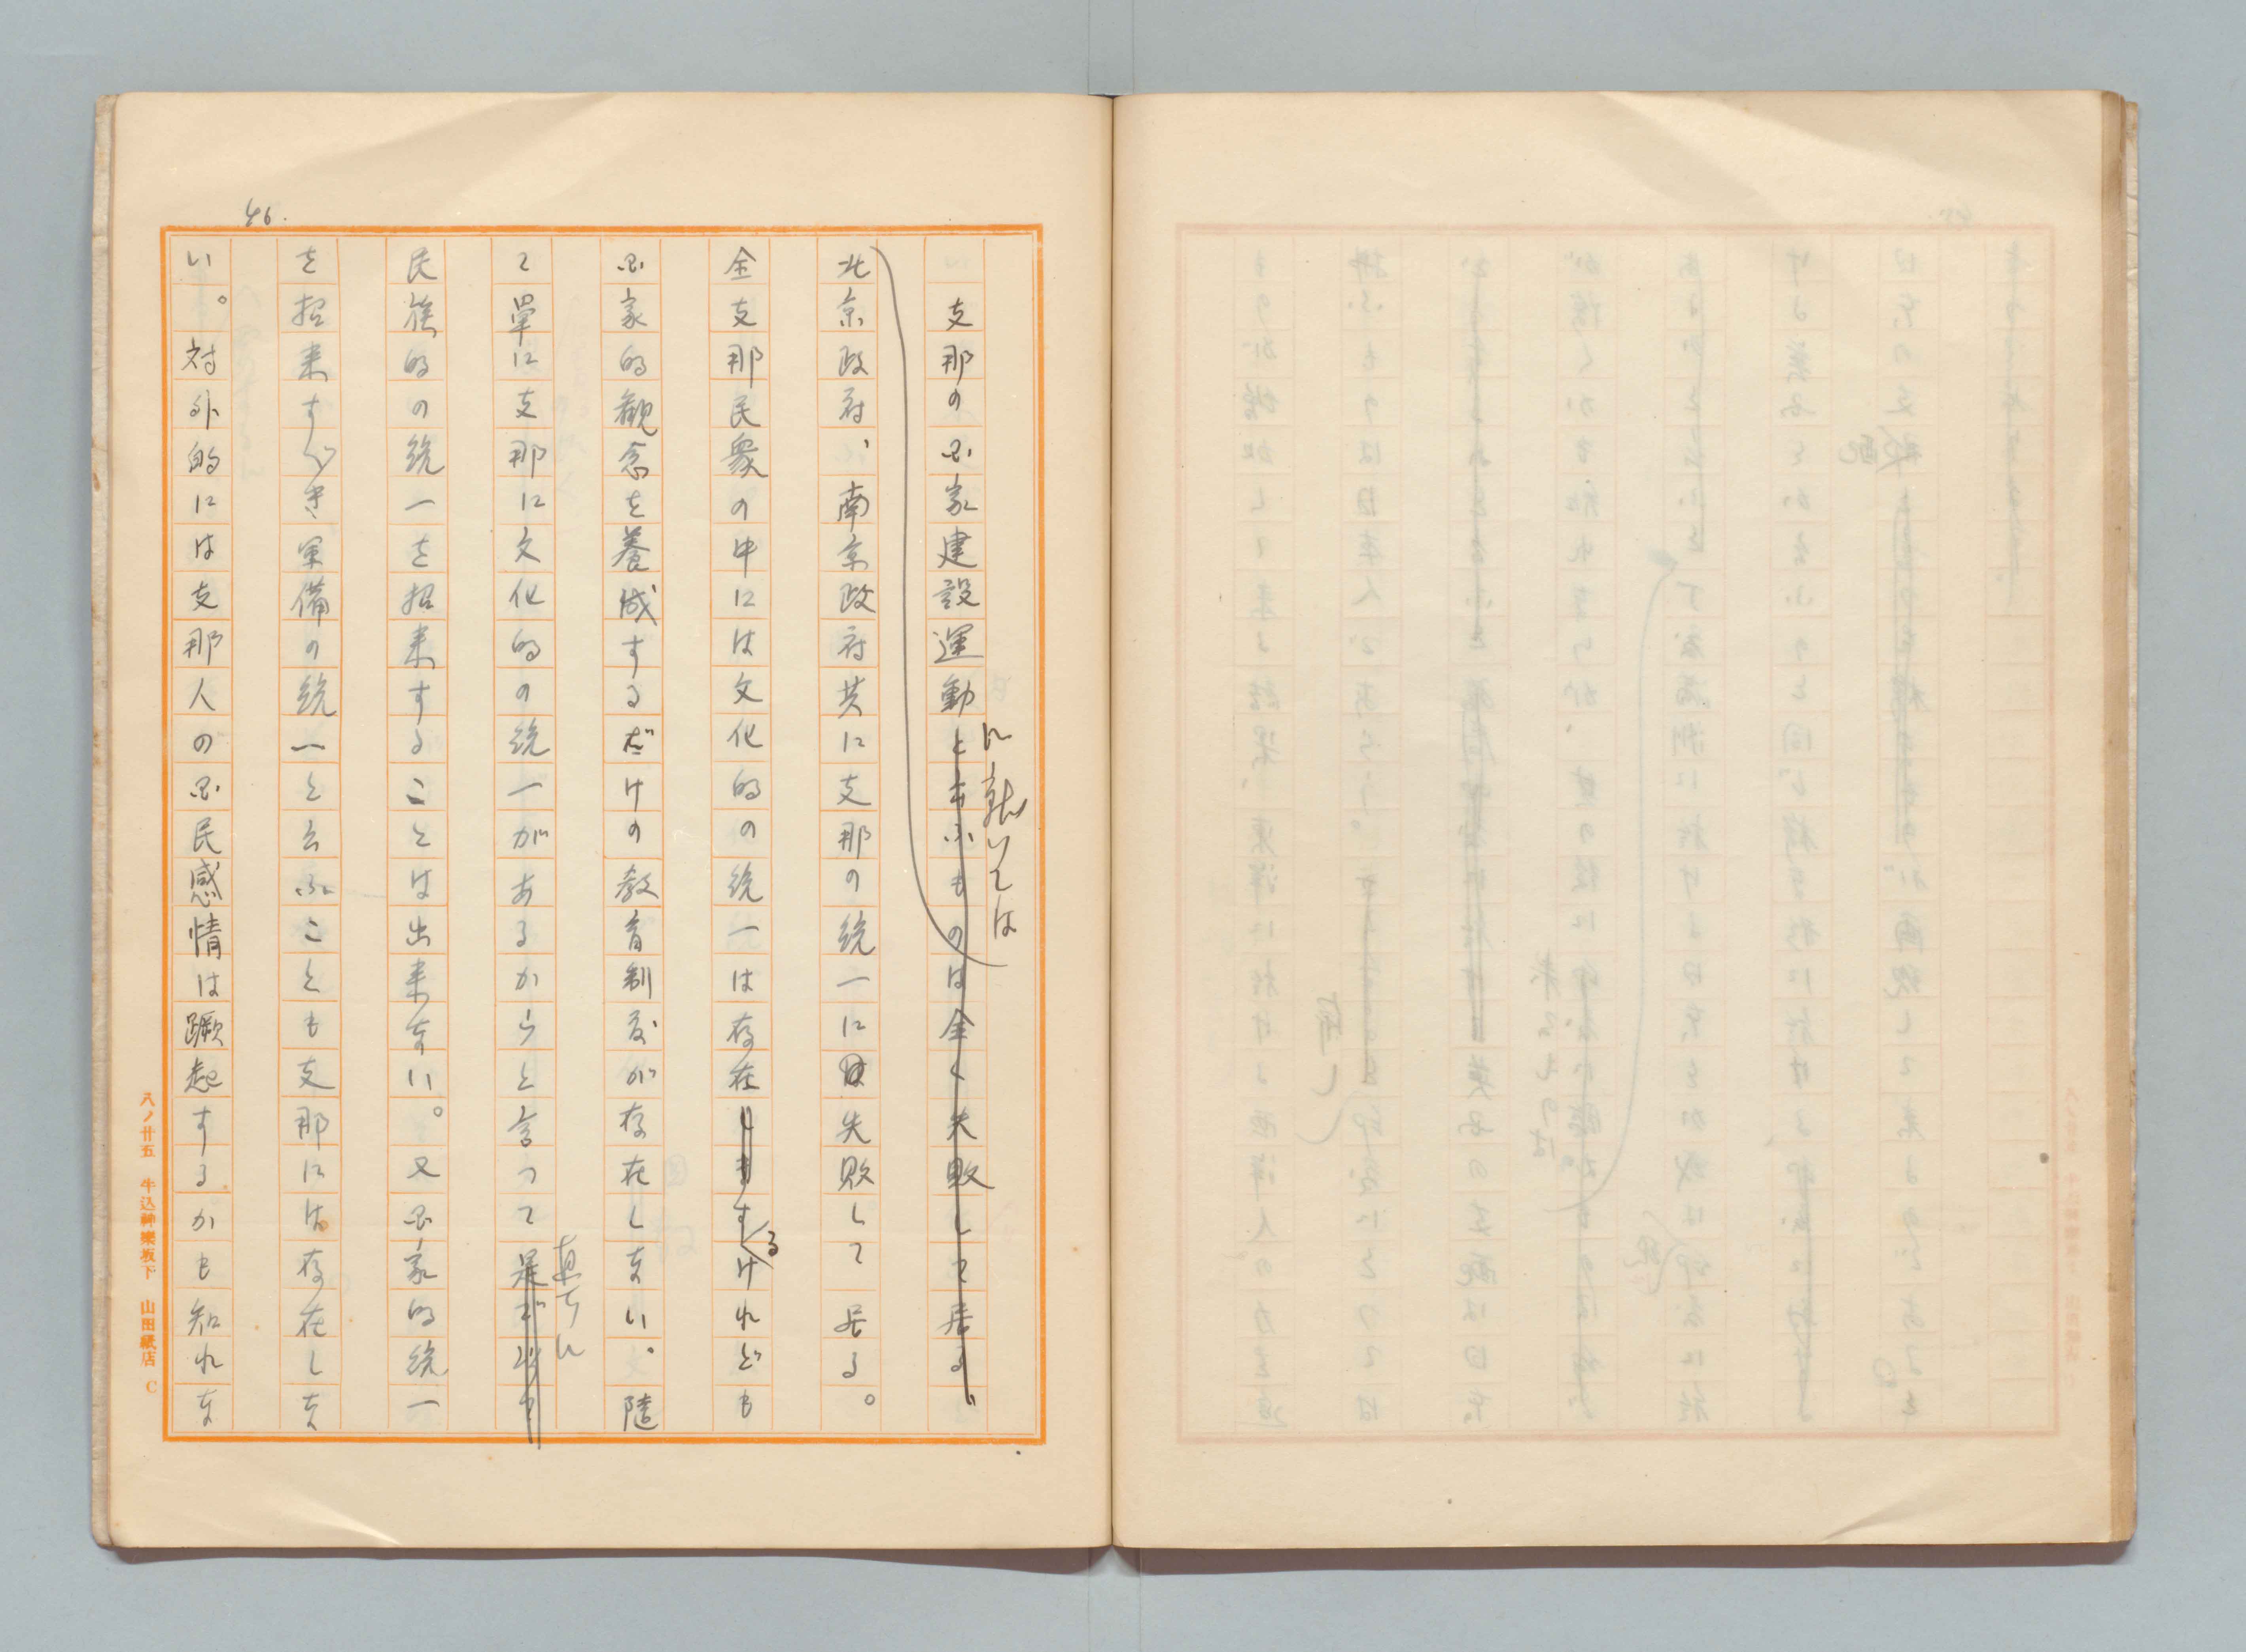 46.
支那の国家建設運動と云ふものは全く失敗して居る、
に就いては
北京政府、南京政府共に支那の統一には失敗して居る。
全支那民衆の中には文化的の統一は存在しますけれども
る
国家的観念を養成するだけの教育制度が存在しない。随
て單に支那に文化的の統一があるからと言つて是が
直ちに
民族的の統一を招来することは出来ない。又国家的統一
を招来すべき軍備の統一と云ふことも支那には存在しな
い。対外的には支那人の国民感情は蹶起するかも知れな
八ノ廿五 牛込神樂坂下 山田紙店 C